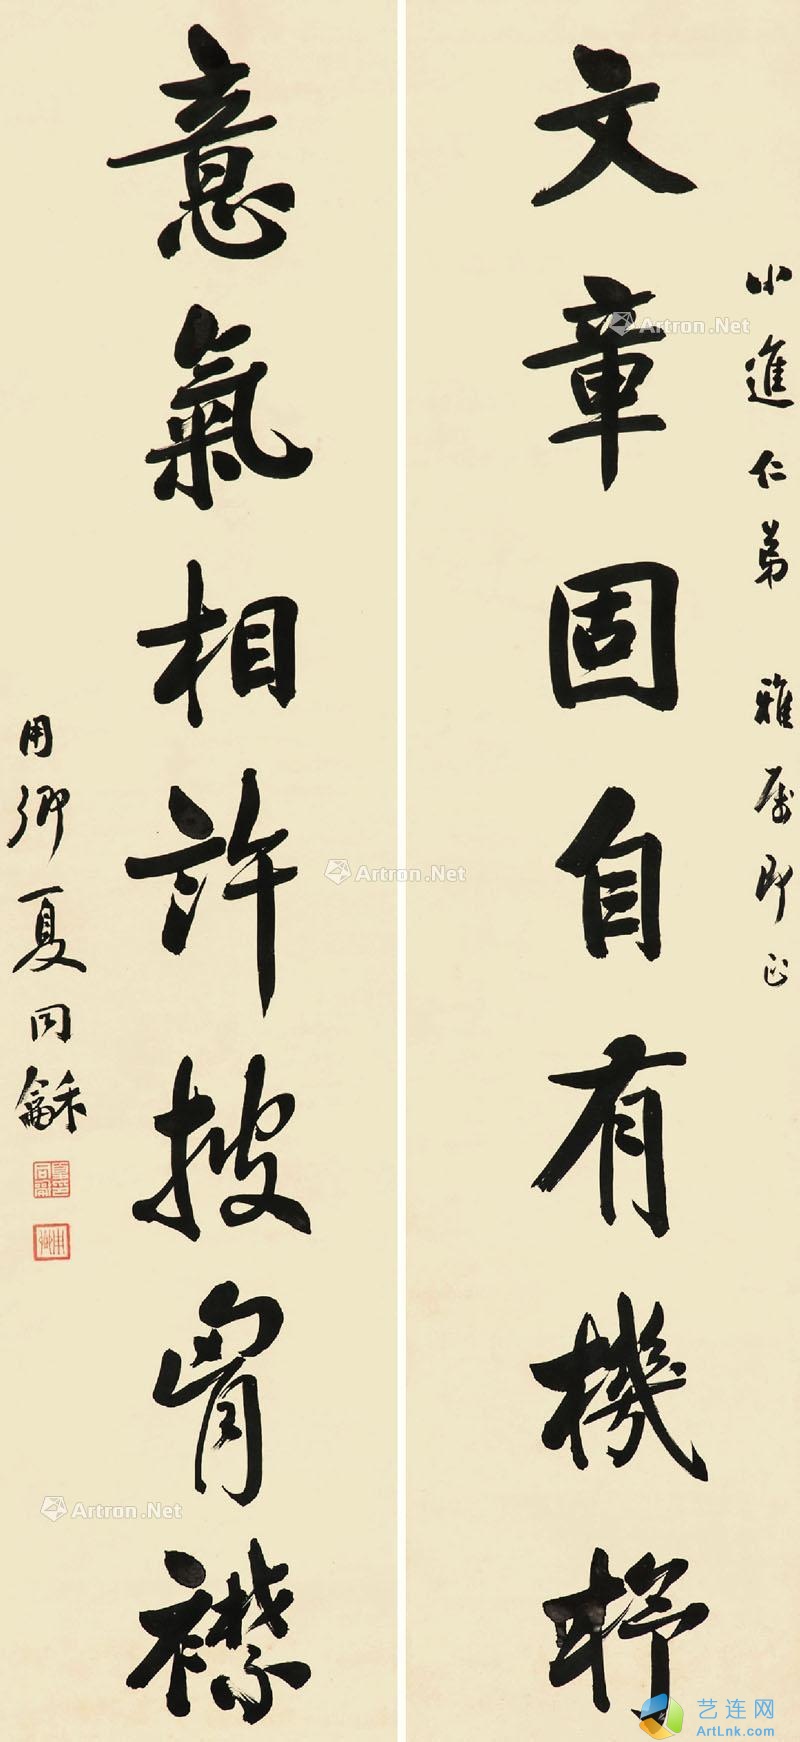 小進仁弟 雅屬即正
文章固自有機杼
意氣相許披胷襟
用卿夏同龢
夏同龢印
用卿
Artron.Net
Artron.Net
Artron.Net
艺连网
ArtLnk.com